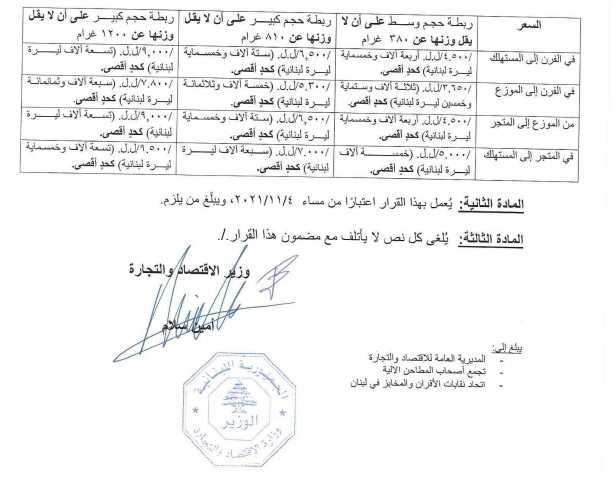 السعر
ربطة حجم وسط على أن لا يقل وزنها عن ٣٨٠ غرام
ربطة حجم كبير على أن لا يقل وزنها عن ٨١٠ غرام
ربطة حجم كبير على أن لا يقل وزنها عن ١٢٠٠ غرام
في الفرن إلى المستهلك
/٤,٥٠٠/ل.ل. (أربعة آلاف وخمسماية ليرة لبنانية) كحدٍ أقصى.
/٦,٥٠٠/ل.ل. (ستة آلاف وخمسماية ليرة لبنانية) كحدٍ أقصى.
/٩,٠٠٠/ل.ل. (تسعة آلاف ليرة لبنانية) كحدٍ أقصى.
في الفرن إلى الموزع
/٣,٦٥٠/ل.ل. (ثلاثة آلاف وستماية وخمسين ليرة لبنانية) كحدٍ أقصى.
/٥,٣٠٠/ل.ل. (خمسة آلاف وثلاثمائة ليرة لبنانية) كحدٍ أقصى.
/٧,٨٠٠/ل.ل. (سبعة آلاف وثمانمائة ليرة لبنانية) كحدٍ أقصى.
من الموزع إلى المتجر
/٤,٥٠٠/ل.ل. (أربعة آلاف وخمسماية ليرة لبنانية) كحدٍ أقصى.
/٦,٥٠٠/ل.ل. (ستة آلاف وخمسماية ليرة لبنانية) كحدٍ أقصى.
/٩,٠٠٠/ل.ل. (تسعة آلاف ليرة لبنانية) كحدٍ أقصى.
في المتجر إلى المستهلك
/٥,٠٠٠/ل.ل. (خمسة آلاف ليرة لبنانية) كحدٍ أقصى.
/٧,٠٠٠/ل.ل. (سبعة آلاف ليرة لبنانية) كحدٍ أقصى.
/٩,٥٠٠/ل.ل. (تسعة آلاف وخمسماية ليرة لبنانية) كحدٍ أقصى.
المادة الثانية: يُعمل بهذا القرار اعتبارًا من مساء ٢٠٢١/١١/٤، ويبلّغ من يلزم.
المادة الثالثة: يُلغى كل نص لا يأتلف مع مضمون هذا القرار./.
وزير الاقتصاد والتجارة
أمين سلام
يبلغ إلى:
- المديرية العامة للاقتصاد والتجارة
- تجمع أصحاب المطاحن الالية
- اتحاد نقابات الأفران والمخابز في لبنان
الجمهورية اللبنانية
الوزير
وزارة الإقتصاد والتجارة